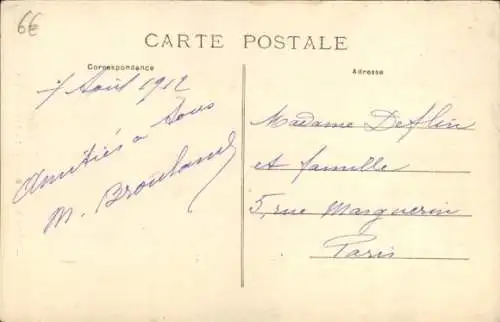 6€
CARTE POSTALE
Correspondance
Adresse
7 Août 1912
Amitiés a tous
M. Brouland
Madame Deflin
et famille
5, rue Marguerin
Paris